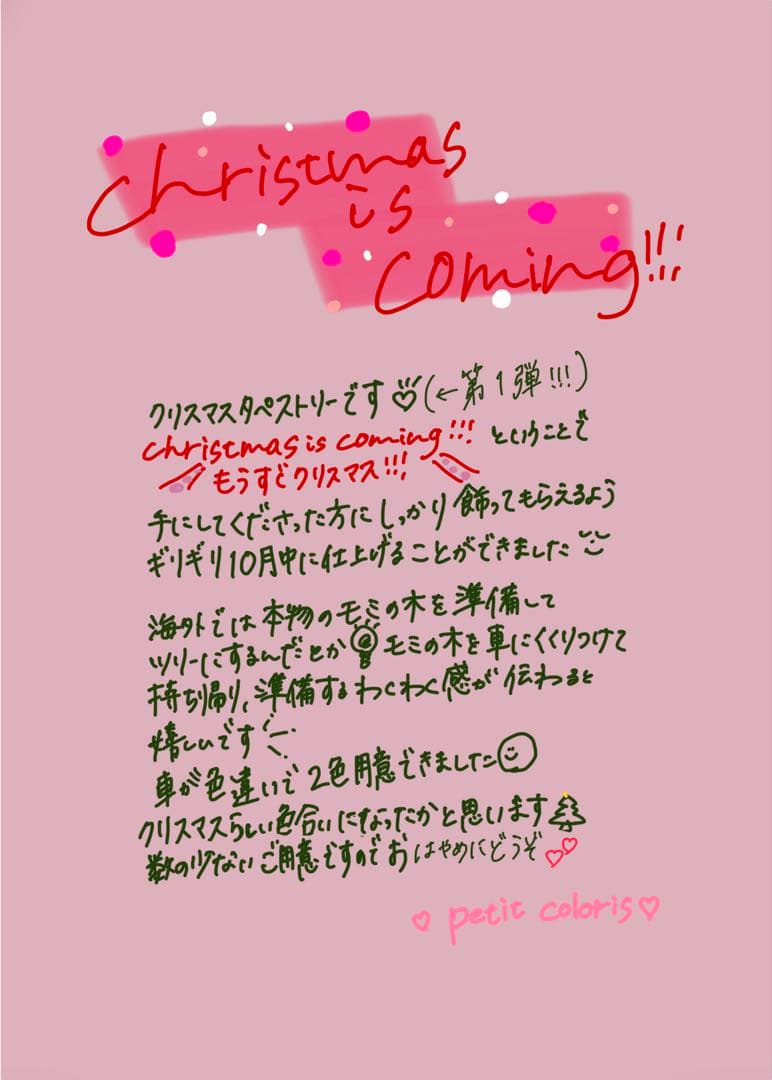 christmas
is
coming!!!
クリスマスタペストリーです♡(←第1弾!!!)
christmas is coming!!! ということで
もうすぐクリスマス!!!
手にしてくださった方にしっかり飾ってもらえるよう
ギリギリ10月中に仕上げることができました
海外では本物のモミの木を準備して
ツリーにするんだとか モミの木を車にくくりつけて
持ち帰り、準備するわくわく感が伝わると
嬉しいです
車が色違いで2色用意できました
クリスマスらしい色合いになったかと思います🎄
数の少ないご用意ですのでおはやめにどうぞ♡♡
♡ petit coloris♡